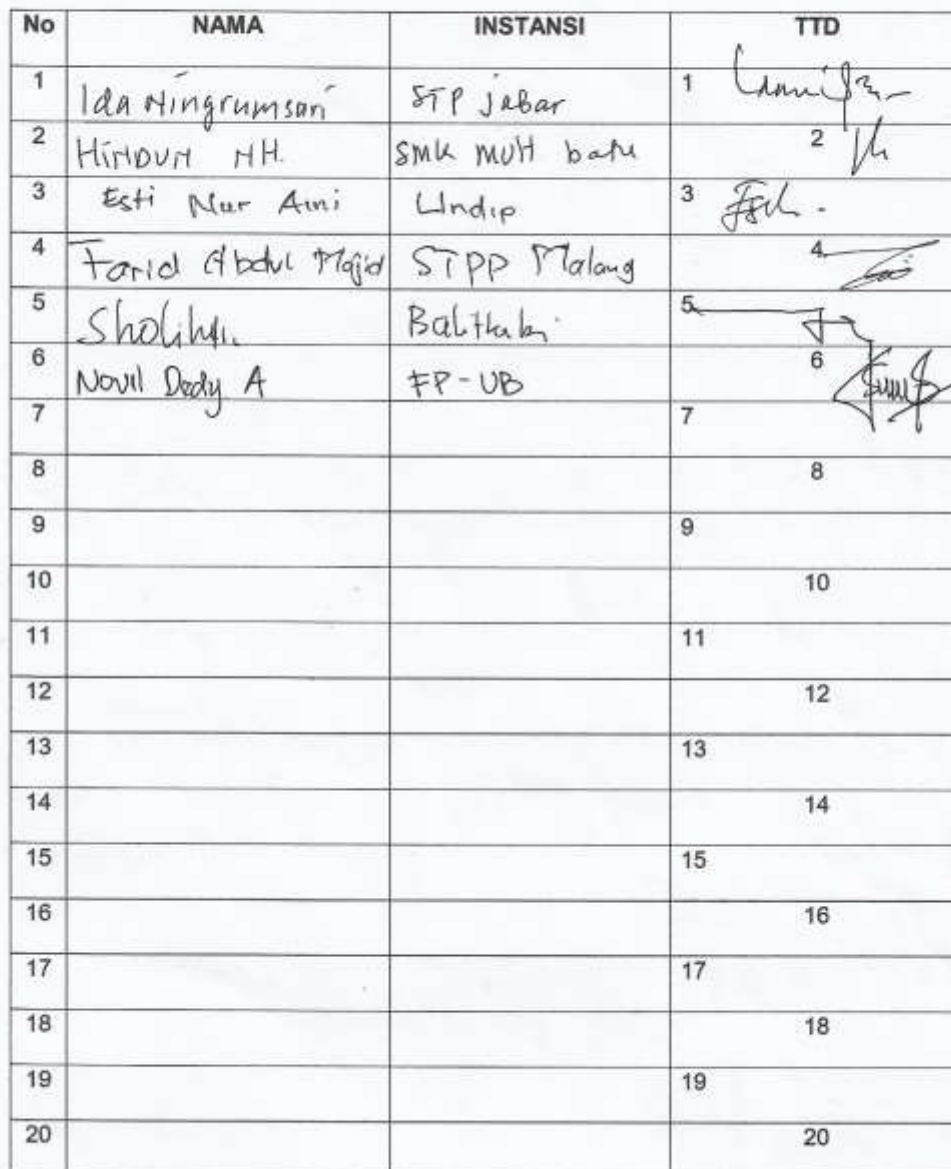 No NAMA INSTANSI TTD
1 Ida Ningrumsari STP jabar 1
2 HINDUN NH. SMK MUH batu 2
3 Esti Nur Aini Undip 3
4 Farid Abdul Majid STPP Malang 4
5 Balitkabi 5
6 Novil Dedy A FP-UB 6
7 7
8 8
9 9
10 10
11 11
12 12
13 13
14 14
15 15
16 16
17 17
18 18
19 19
20 20